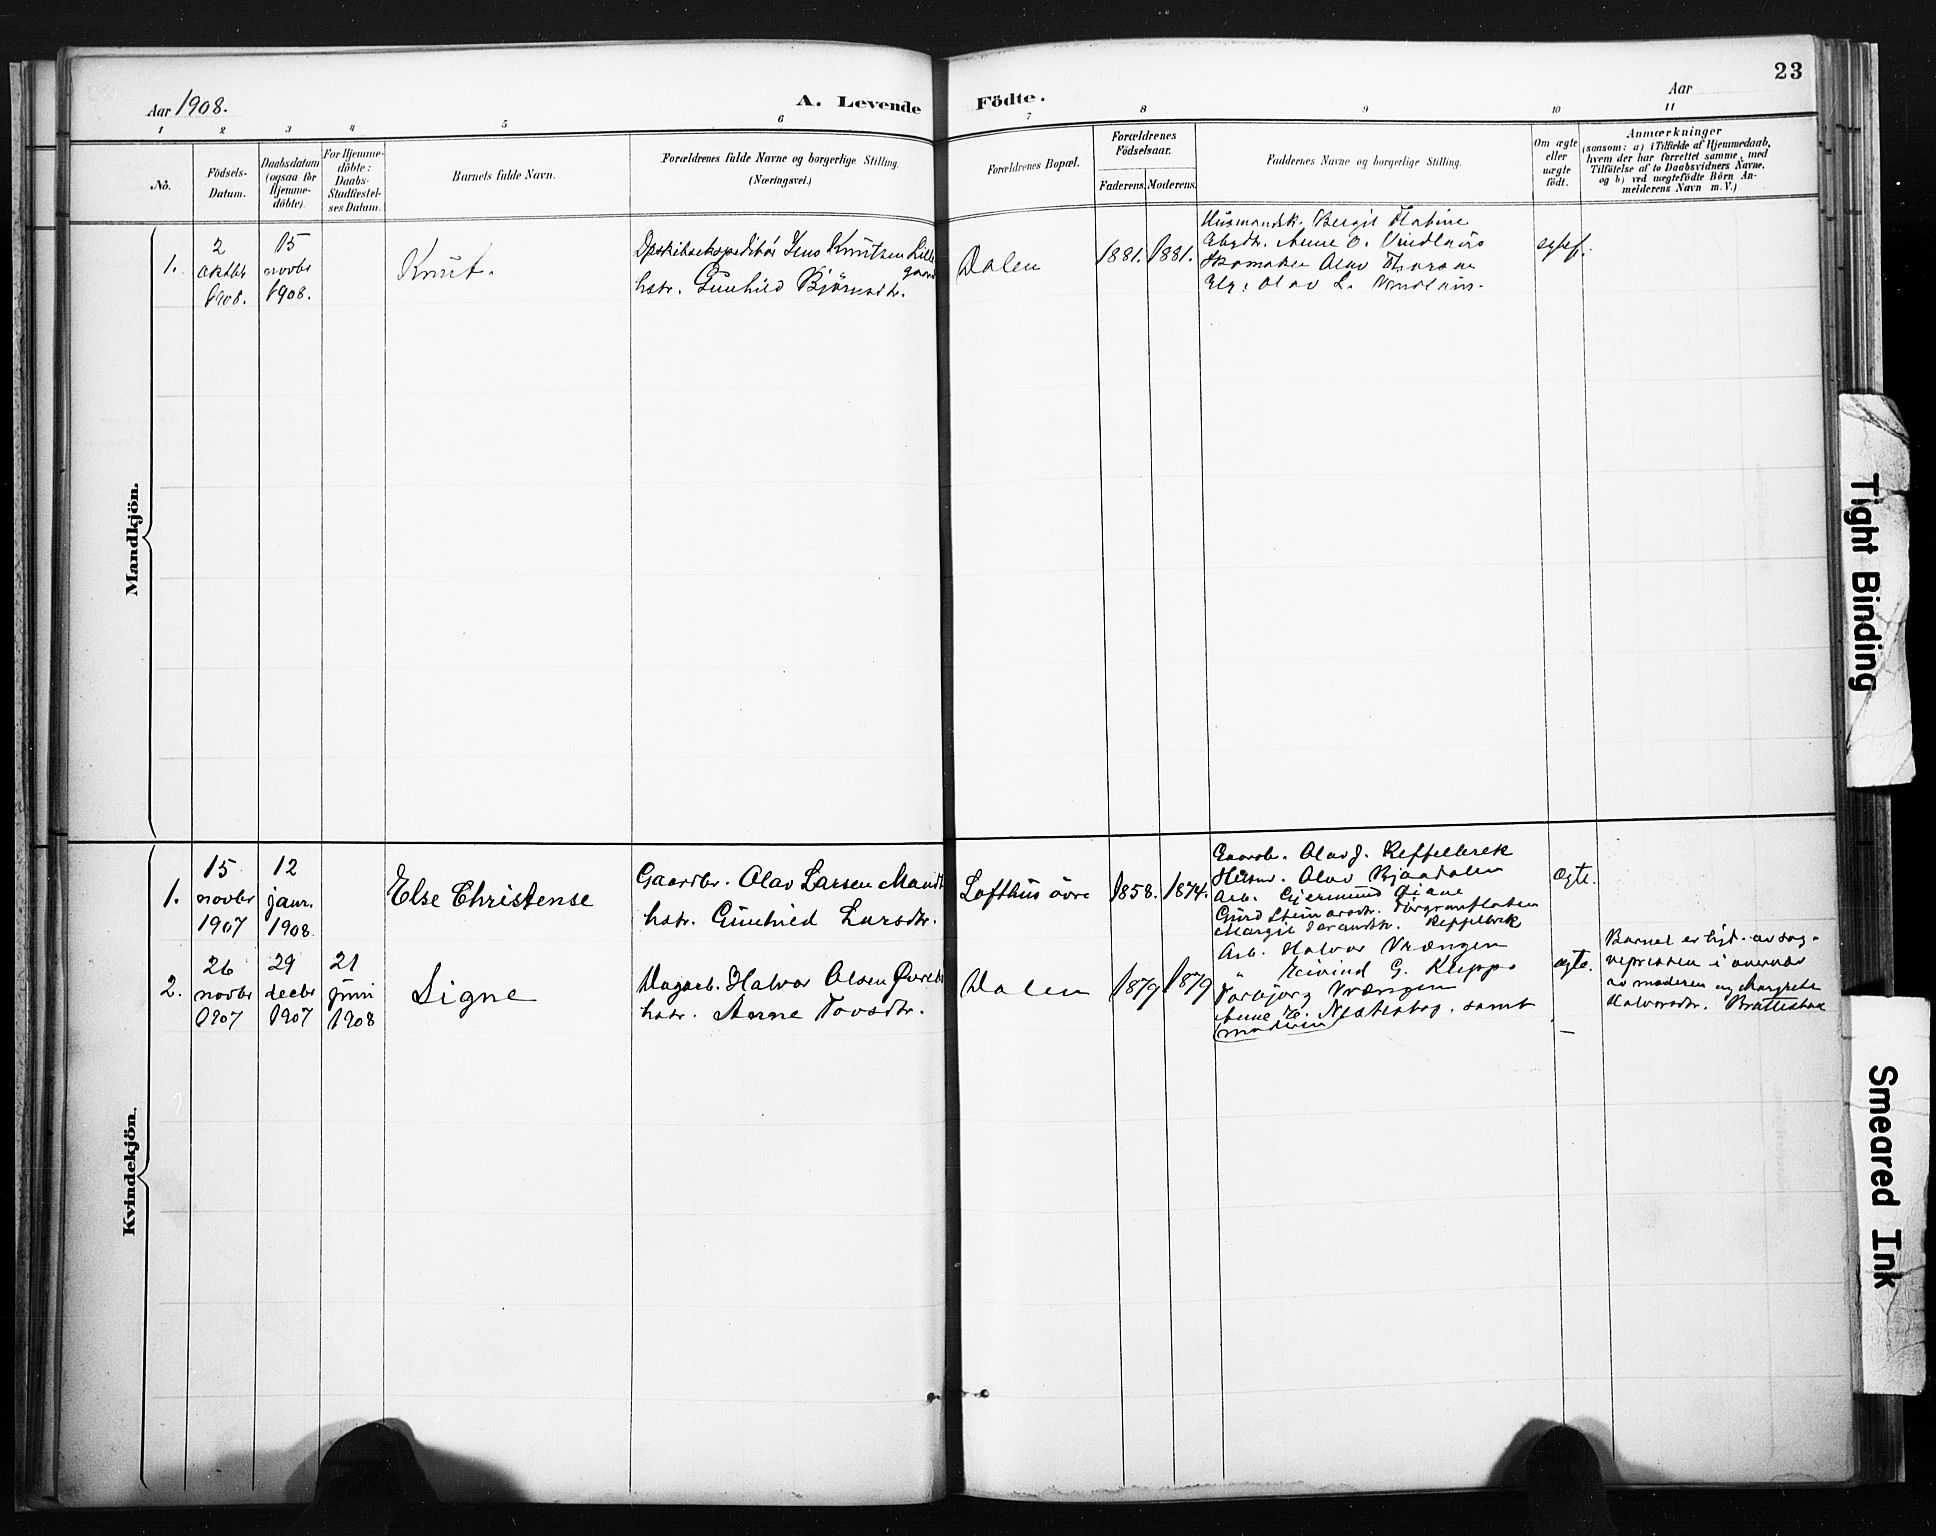 23
Aar 1908.
A. Levende Födte.
Aar
1 2 3 4 5 6 7 8 9 10 11
No.
Födsels-
Datum.
Daabsdatum
(ogsaa for
Hjemme-
döbte).
For Hjemme-
döbte:
Daabs-
Stadfæstel-
ses Datum.
Barnets fulde Navn.
Forældrenes fulde Navne og borgerlige Stilling.
(Næringsvei.)
Forældrenes Bopæl.
Forældrenes
Födselsaar.
Faderens. Moderens.
Faddernes Navne og borgerlige Stilling.
Om ægte
eller
uægte
födt.
Anmærkninger
(saasom: a) i Tilfælde af Hjemmedaab,
hvem der har forrettet samme, med
Tilföielse af to Daabsvidners Navne.
og b) ved uægtefödte Börn An-
melderens Navn m. V.)
Mandkjön.
1.
2
oktbr
1908.
15
novbr
1908.
Knut.
Jens Knutsen Lille
gaard
hstr. Gunhild Björnsdtr.
Dalen
1881. 1881.
Husmandsk. Bergit
Anne O. Vindlaus
Skomaker Olav
Olav L. Vindlaus.
Kvindekjön.
1.
15
novbr
1907
12
janr.
1908.
Else Christense
Gaardbr. Olav Larsen
hstr. Gunhild Larsdtr.
Lofthus övre
1858. 1874.
Gaardbr. Olav J. Reppelbrek
Husm. Olav Bjaadalen
Arb. Gjermund
Margit Reppelbrek
ægte.
2.
26
novbr
1907
29
decbr
1907
21
juni
1908
Signe
Dagarb. Halvor Olsen
hstr. Anne Tovsdtr.
Dalen
1879 1879
Arb. Halvor Vrængen
" Eivind G. Kleppo
Torbjörg Vrængen
Anne samt
moderen
ægte.
Barnet er hjd. av sog-
nepresten i overvær
av moderen og Margrete
Halvorsdtr. Brattestaae
Tight Binding
Smeared Ink